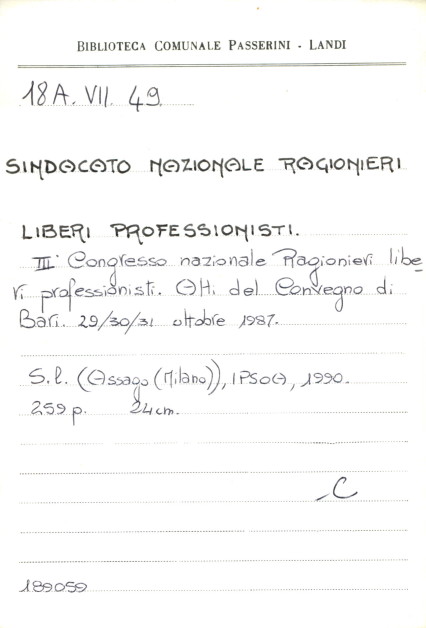 BIBLIOTECA COMUNALE PASSERINI - LANDI
18A. VII. 49
SINDACATO NAZIONALE RAGIONIERI
LIBERI PROFESSIONISTI.
III° Congresso nazionale Ragionieri libe-
ri professionisti. Atti del Convegno di
Bari. 29/30/31 ottobre 1987.
S.l. (Assago (Milano)), IPSOA, 1990.
259 p. 24 cm.
C
189059